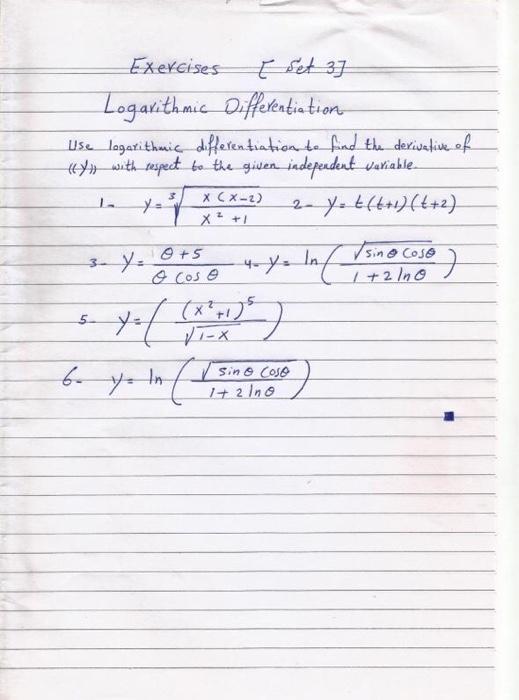 Exercises [ Set 3]
Logarithmic Differentiation
Use logarithmic differentiation to find the derivative of
((y)) with respect to the given independent variable.
1- y = ∛(x(x-2) / (x² +1)) 2- y = t(t+1)(t+2)
3- y = (θ+5) / (θ cos θ) 4- y = ln(√(sin θ cos θ) / (1+2 ln θ))
5- y = ((x²+1)⁵ / √(1-x))
6- y = ln(√(sin θ cos θ) / (1+2 ln θ))